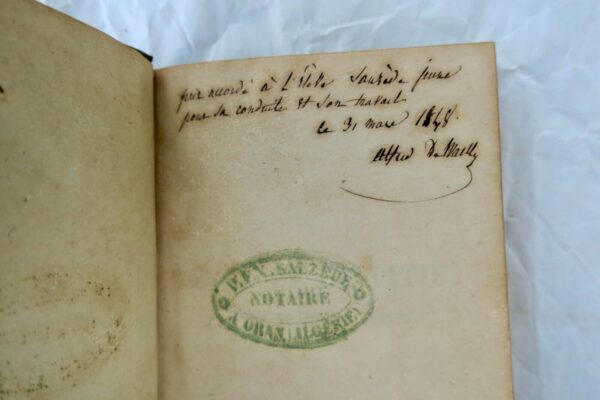 prix accordé à L'Élève Sauzède jeune
pour sa conduite et son travail
Le 31 mars 1848.
Alfred De Wailly
NOTAIRE
A ORAN (ALGÉRIE)